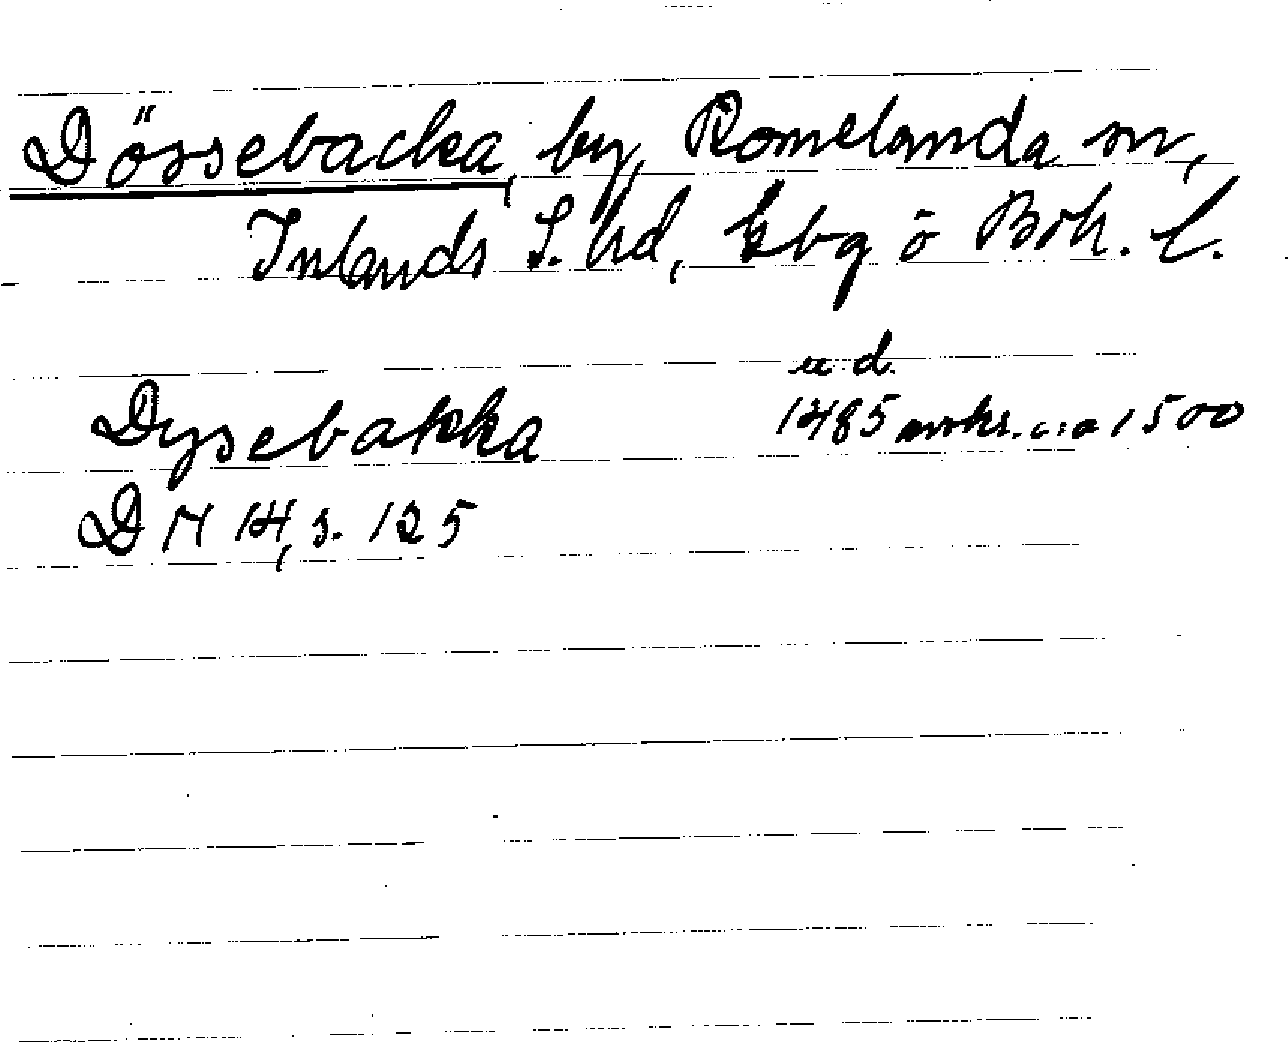 Dössebacka, by, Romelanda sn,
Inlands S. hd, Gbg o Boh. l.
u d.
Dysebakka 1485 avskr. c:a 1500
DN 14, s. 125